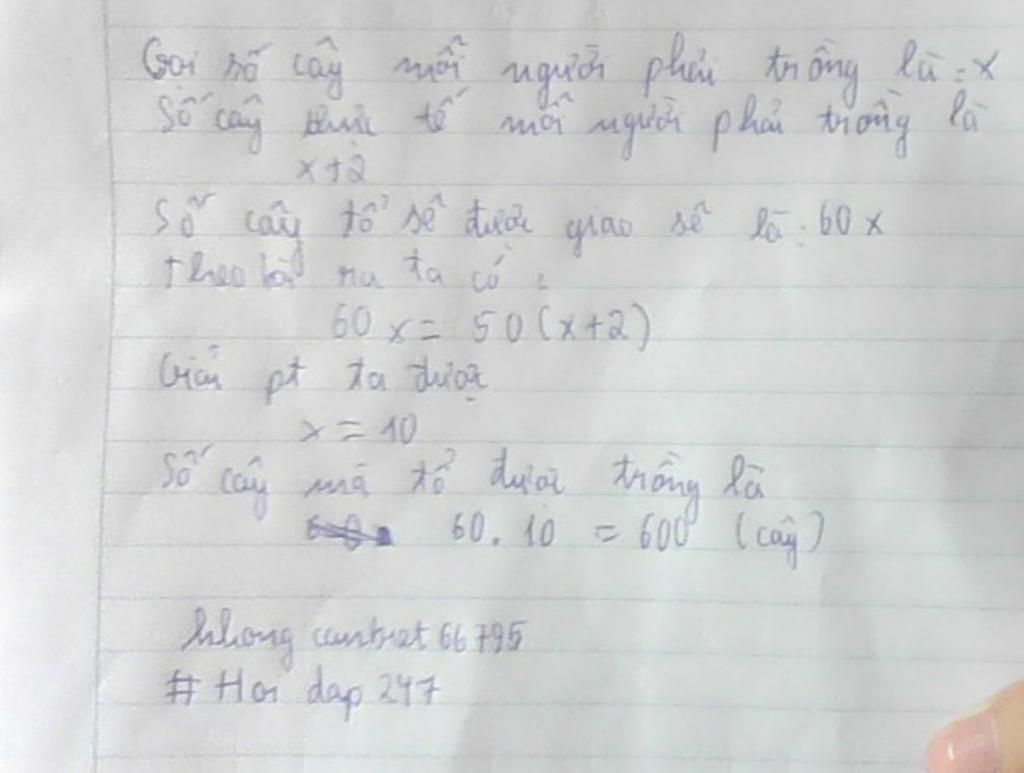 Gọi số cây mỗi người phải trồng là: x
Số cây thực tế mỗi người phải trồng là
x+2
Số cây tổ sẽ được giao sẽ là: 60x
theo bài ra ta có:
60x = 50(x+2)
Giải pt ta được
x = 10
Số cây mà tổ được trồng là
60. 10 = 600 (cây)
khong canbiet 66795
# Hoi dap 247